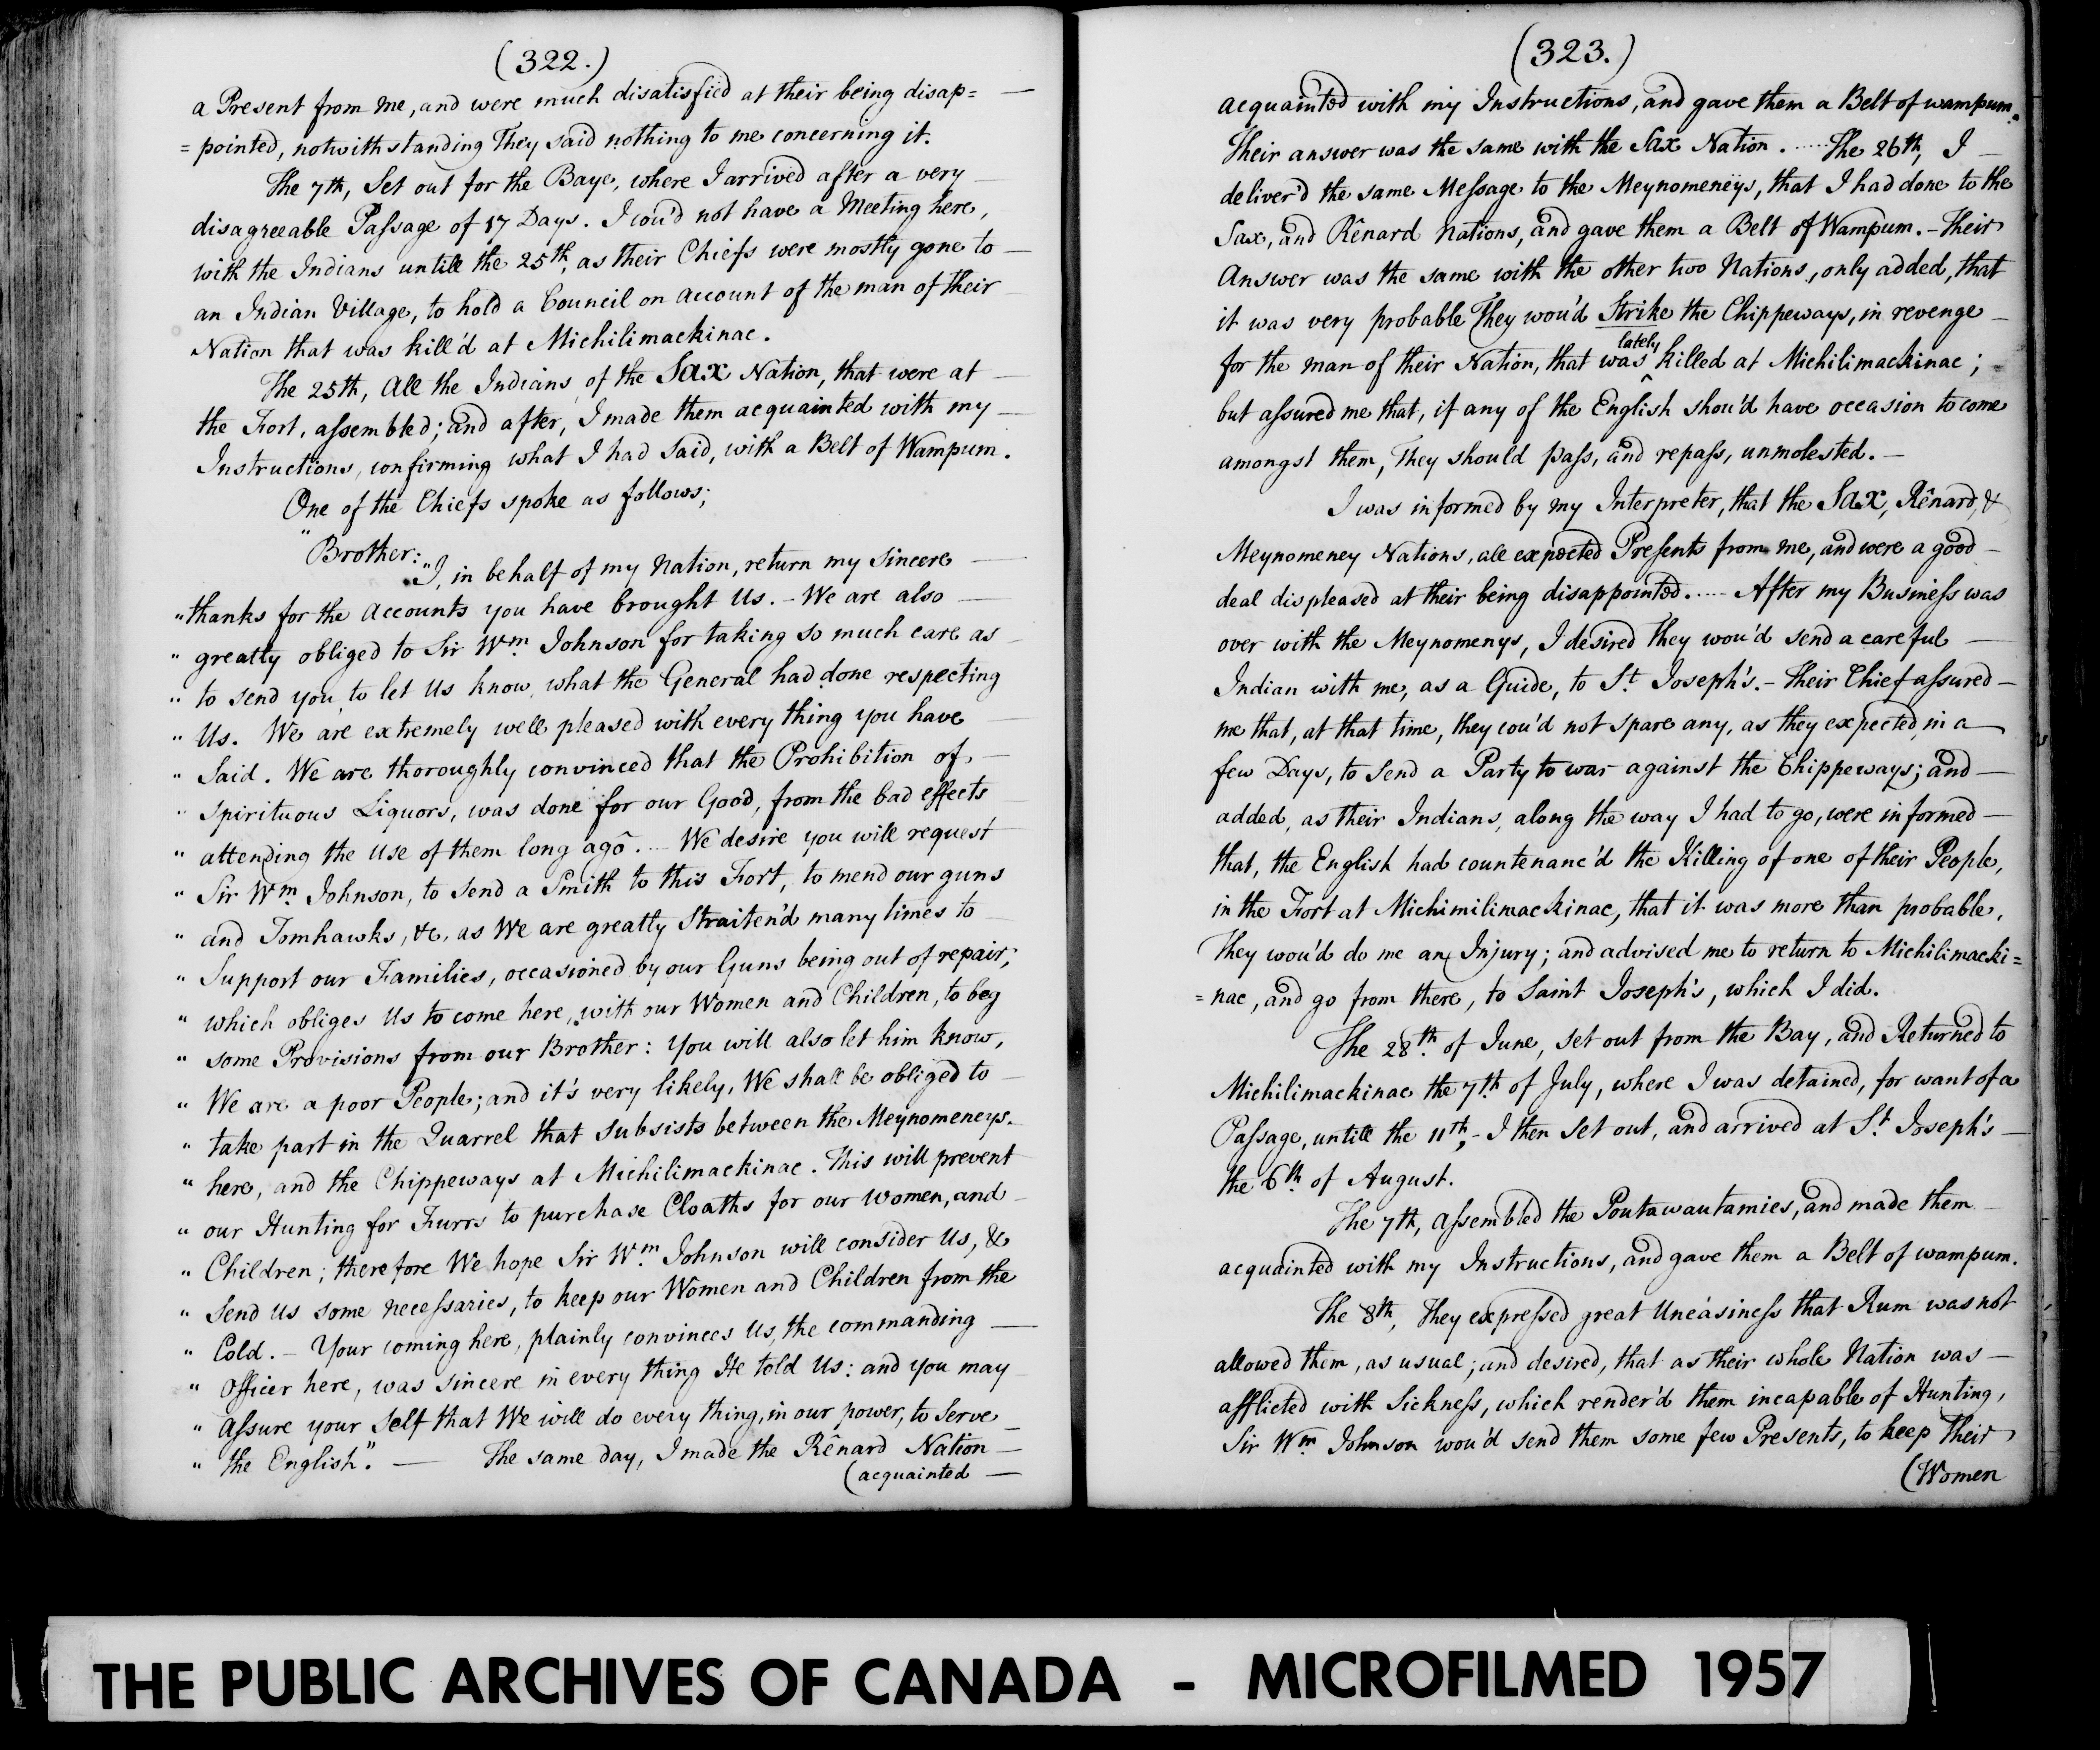 (322.)
a Present from me, and were much disatisfied at their being disap=
=pointed, notwithstanding They said nothing to me concerning it.
The 7th, Set out for the Baye, where I arrived after a very
disagreeable Passage of 17 Days. I cou'd not have a Meeting here,
with the Indians untill the 25th, as their Chiefs were mostly gone to
an Indian Village, to hold a Council on account of the man of their
Nation that was kill'd at Michilimackinac.
The 25th, All the Indians of the Sax Nation, that were at
the Fort, assembled; and after, I made them acquainted with my
Instructions, confirming what I had Said, with a Belt of Wampum.
One of the Chiefs spoke as follows;
"Brother:
"I, in behalf of my Nation, return my Sincere
"thanks for the Accounts you have brought Us. - We are also
" greatly obliged to Sir Wm. Johnson for taking so much care as
" to send you, to let Us know, what the General had done respecting
" Us. We are extremely well pleased with every thing you have
" Said. We are thoroughly convinced that the Prohibition of
" Spirituous Liquors, was done for our Good, from the bad effects
" attending the Use of them long agô. ... We desire you will request
" Sir Wm. Johnson, to Send a Smith to this Fort, to mend our guns
" and Tomhawks, &c, as We are greatly Straiten'd many times to
" Support our Families, occasioned by our Guns being out of repair;
" which obliges Us to come here, with our Women and Children, to beg
" some Provisions from our Brother: You will also let him know,
" We are a poor People; and it's very likely, We shall be obliged to
" take part in the Quarrel that Subsists between the Meynomeneys
" here, and the Chippeways at Michilimackinac. This will prevent
" our Hunting for Furrs to purchase Cloaths for our Women, and
" Children; therefore We hope Sir Wm. Johnson will consider Us, &
" Send Us some necessaries, to keep our Women and Children from the
" Cold. - Your coming here, plainly convinces Us, the commanding
" Officer here, was sincere in every thing He told Us: and you may
" Assure your Self that We will do every thing, in our power, to Serve
" the English." — The same day, I made the Rênard Nation
(acquainted
(323.)
acquainted with my Instructions, and gave them a Belt of wampum.
Their answer was the same with the Sax Nation. ..... The 26th, I
deliver'd the same Message to the Meynomenëys, that I had done to the
Sax, and Rênard Nations, and gave them a Belt of Wampum. - Their
Answer was the same with the other two Nations, only added, that
it was very probable They wou'd Strike the Chippeways, in revenge
for the man of their Nation, that was ^lately killed at Michilimackinac;
but assured me that, if any of the English shou'd have occasion to come
amongst them, They should pass, and repass, unmolested. -
I was informed by my Interpreter, that the Sax, Rênard, &
Meynomeney Nations, all expected Presents from me, and were a good
deal displeased at their being disappointed. .... After my Business was
over with the Meynomenys, I desired They wou'd send a careful
Indian with me, as a Guide, to St. Joseph's. - Their Chief assured
me that, at that time, they cou'd not spare any, as they expected, in a
few Days, to Send a Party to war against the Chippeways; and
added, as their Indians, along the way I had to go, were informed
that, the English had countenanc'd the Killing of one of their People,
in the Fort at Michimilimackinac, that it was more than probable,
They wou'd do me an Injury; and advised me to return to Michilimacki=
=nac, and go from there, to Saint Joseph's, which I did.
The 28th. of June, Set out from the Bay, and Returned to
Michilimackinac the 7th of July, where I was detained, for want of a
Passage, untill the 11th; - I then Set out, and arrived at St. Joseph's
the 6th. of August.
The 7th, Assembled the Poutawautamies, and made them
acquainted with my Instructions, and gave them a Belt of wampum.
The 8th, They expressed great Uneasiness that Rum was not
allowed them, as usual; and desired, that as their whole Nation was
afflicted with Sickness, which render'd them incapable of Hunting,
Sir Wm. Johnson wou'd send them some few Presents, to keep Their
(Women
THE PUBLIC ARCHIVES OF CANADA - MICROFILMED 1957